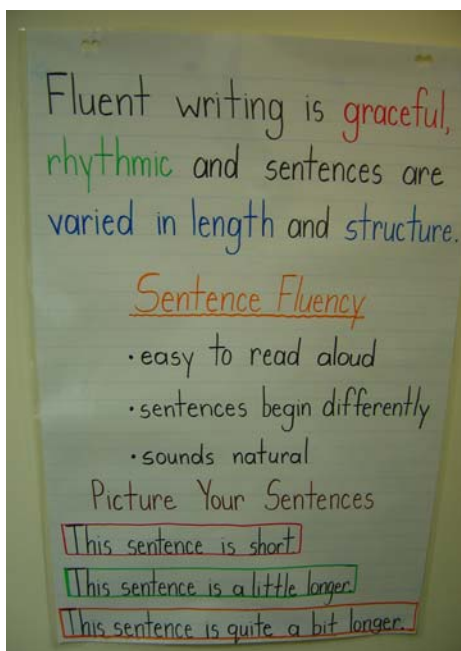 Fluent writing is graceful,
rhythmic and sentences are
varied in length and structure.
Sentence Fluency
• easy to read aloud
• sentences begin differently
• sounds natural
Picture Your Sentences
This sentence is short.
This sentence is a little longer.
This sentence is quite a bit longer.